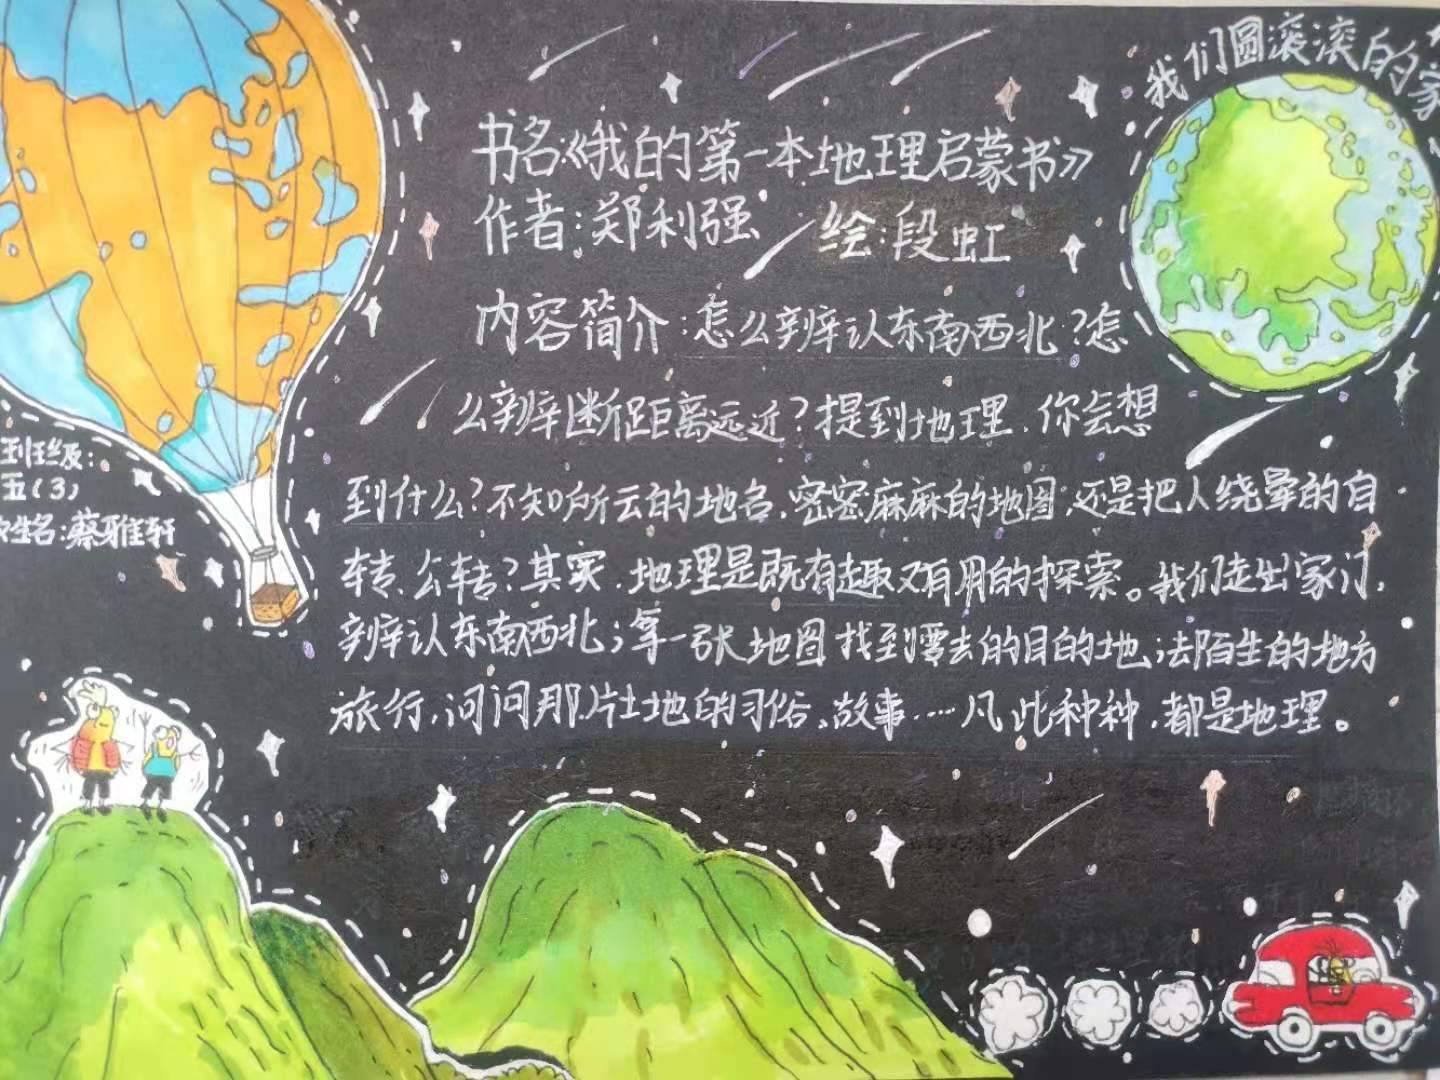 我们圆滚滚的家
书名:《我的第一本地理启蒙书》
作者:郑利强 绘:段虹
内容简介:怎么辨认东南西北?怎
么辨断距离远近?提到地理,你会想
到什么?不知所云的地名,密密麻麻的地图,还是把人绕晕的自
转、公转?其实,地理是既有趣又有用的探索。我们走出家门,
辨认东南西北;拿一张地图找到要去的目的地;去陌生的地方
旅行,问问那片土地的习俗、故事,…凡此种种,都是地理。
班级:
五(3)
姓名:蔡雅轩